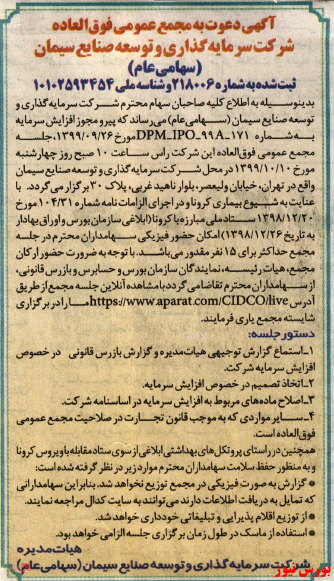 آگهی دعوت به مجمع عمومی فوق العاده
شرکت سرمایه گذاری و توسعه صنایع سیمان
(سهامی عام)
ثبت شده به شماره ۲۱۸۰۰۶ و شناسه ملی ۱۰۱۰۲۵۹۳۴۵۴
بدینوسیله به اطلاع کلیه صاحبان سهام محترم شرکت سرمایه گذاری و
توسعه صنایع سیمان (سهامی عام) می‌رساند که پیرو مجوز افزایش سرمایه
به شماره DPM_IPO_99A_171 مورخ ۱۳۹۹/۰۹/۲۶، جلسه
مجمع عمومی فوق العاده این شرکت راس ساعت ۱۰ صبح روز چهارشنبه
مورخ ۱۳۹۹/۱۰/۱۰ در محل شرکت سرمایه گذاری و توسعه صنایع سیمان
واقع در تهران، خیابان ولیعصر، بلوار ناهید غربی، پلاک ۳۰ برگزار می گردد. با
عنایت به شیوع بیماری کرونا و در اجرای الزامات نامه شماره ۱۰۴/۳۱ مورخ
۱۳۹۸/۱۲/۲۰ ستاد ملی مبارزه با کرونا (ابلاغی سازمان بورس و اوراق بهادار
به تاریخ ۱۳۹۸/۱۲/۲۶) امکان حضور فیزیکی سهامداران محترم در جلسه
مجمع حداکثر برای ۱۵ نفر مقدور می باشد. با توجه به ضرورت حضور ارکان
مجمع، هیات رئیسه، نمایندگان سازمان بورس و حسابرس و بازرس قانونی،
از سهامداران محترم تقاضا می گردد با مشاهده آنلاین جلسه مجمع از طریق
آدرس https://www.aparat.com/CIDCO/live ما را در برگزاری
شایسته مجمع یاری فرمایند.
دستور جلسه:
۱_استماع گزارش توجیهی هیات مدیره و گزارش بازرس قانونی در خصوص
افزایش سرمایه شرکت.
۲_اتخاذ تصمیم در خصوص افزایش سرمایه.
۳_اصلاح ماده های مربوط به افزایش سرمایه در اساسنامه شرکت.
۴_سایر مواردی که به موجب قانون تجارت در صلاحیت مجمع عمومی
فوق العاده است.
همچنین در راستای پروتکل های بهداشتی ابلاغی از سوی ستاد مقابله با ویروس کرونا
و به منظور حفظ سلامت سهامداران محترم موارد زیر در نظر گرفته شده است:
* گزارش به صورت فیزیکی در مجمع توزیع نخواهد شد. بنابراین سهامدارانی
که تمایل به دریافت اطلاعات دارند می توانند به سایت کدال مراجعه نمایند.
* از توزیع اقلام پذیرایی و تبلیغاتی خودداری خواهد شد.
* استفاده از ماسک در طول زمان برگزاری جلسه الزامی خواهد بود.
هیات مدیره
شرکت سرمایه گذاری و توسعه صنایع سیمان (سهامی عام)
بورس نیوز